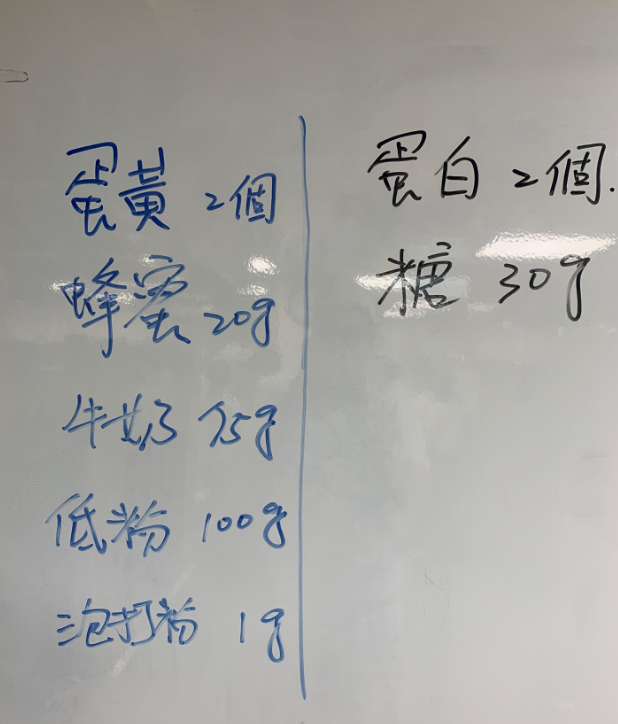 蛋黃 2個
蜂蜜 20g
牛奶 75g
低粉 100g
泡打粉 1g
蛋白 2個.
糖 30g